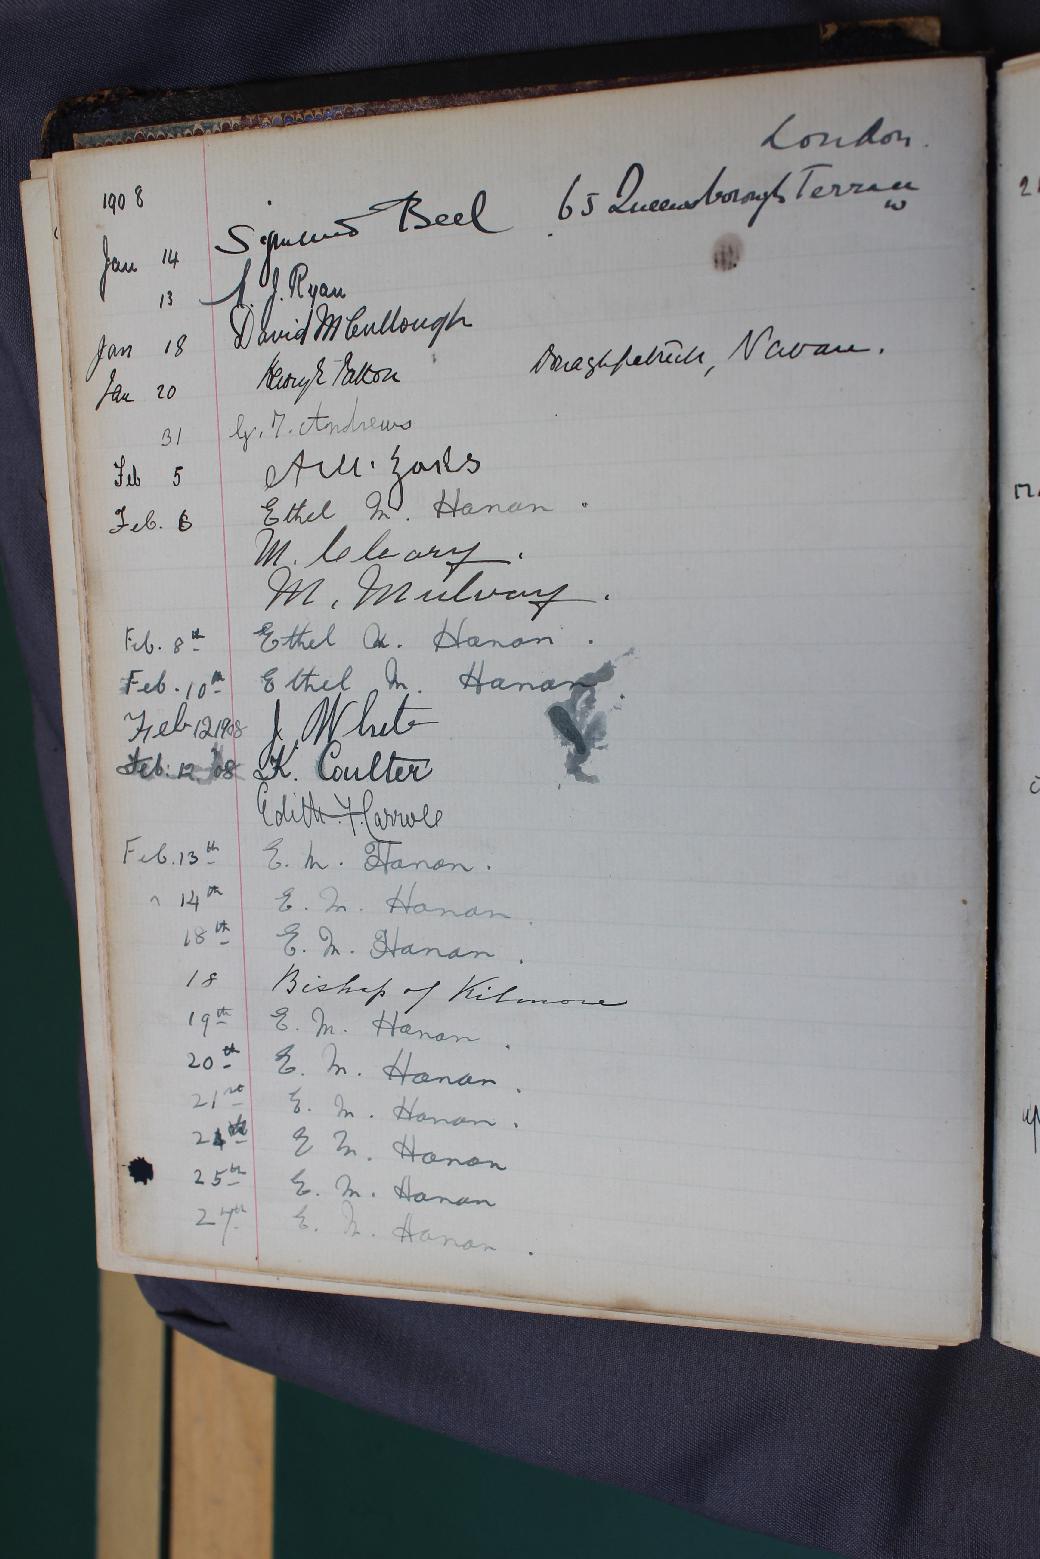 London.
1908
Jan 14 Sigmund Beel 65 Queensborough Terrace
w
13 J. J. Ryan
Jan 18 David McCullough
Jan 20 Henry E Patton Donaghpatrick, Navan.
31 G. T. Andrews
Feb 5
Feb. 6 Ethel M. Hanan.
M. Cleary.
M. Mulvany.
Feb. 8th Ethel M. Hanan.
Feb. 10th Ethel M. Hanan.
Feb 12 1908 J. White
Feb. 12 '08 K. Coulter
Edith
Feb. 13th E. M. Hanan.
" 14th E. M. Hanan.
18th E. M. Hanan.
18 Bishop of Kilmore
19th E. M. Hanan.
20th E. M. Hanan.
21st E. M. Hanan.
24th E M. Hanan
25th E. M. Hanan
27th E. M. Hanan.